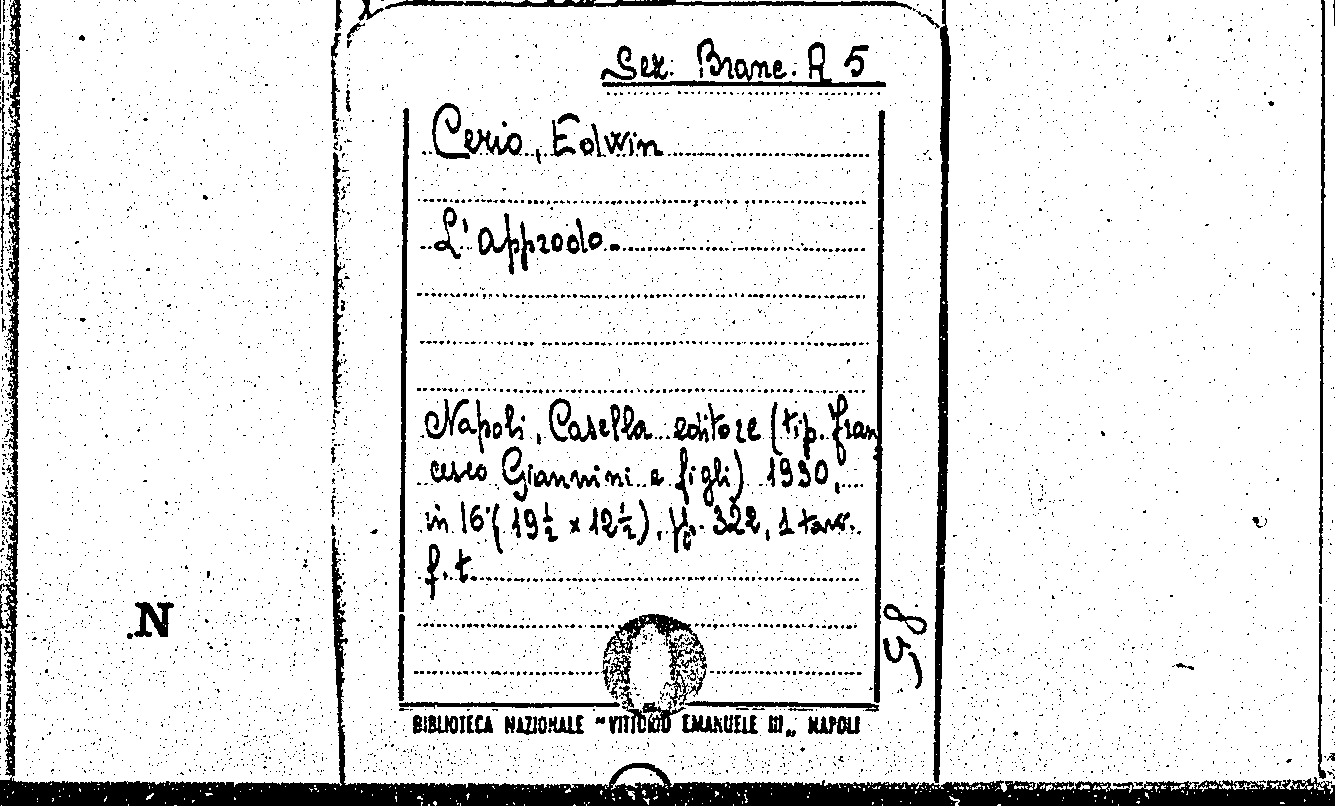 Sez. Branc. A 5
Cerio, Edwin
L'approdo.
Napoli, Casella editore (tip. Fran
cesco Giannini e figli) 1930,
in 16° (19½ x 12½), pp. 322, 1 tav.
f. t.
.N
58
BIBLIOTECA NAZIONALE "VITTORIO EMANUELE III„ NAPOLI